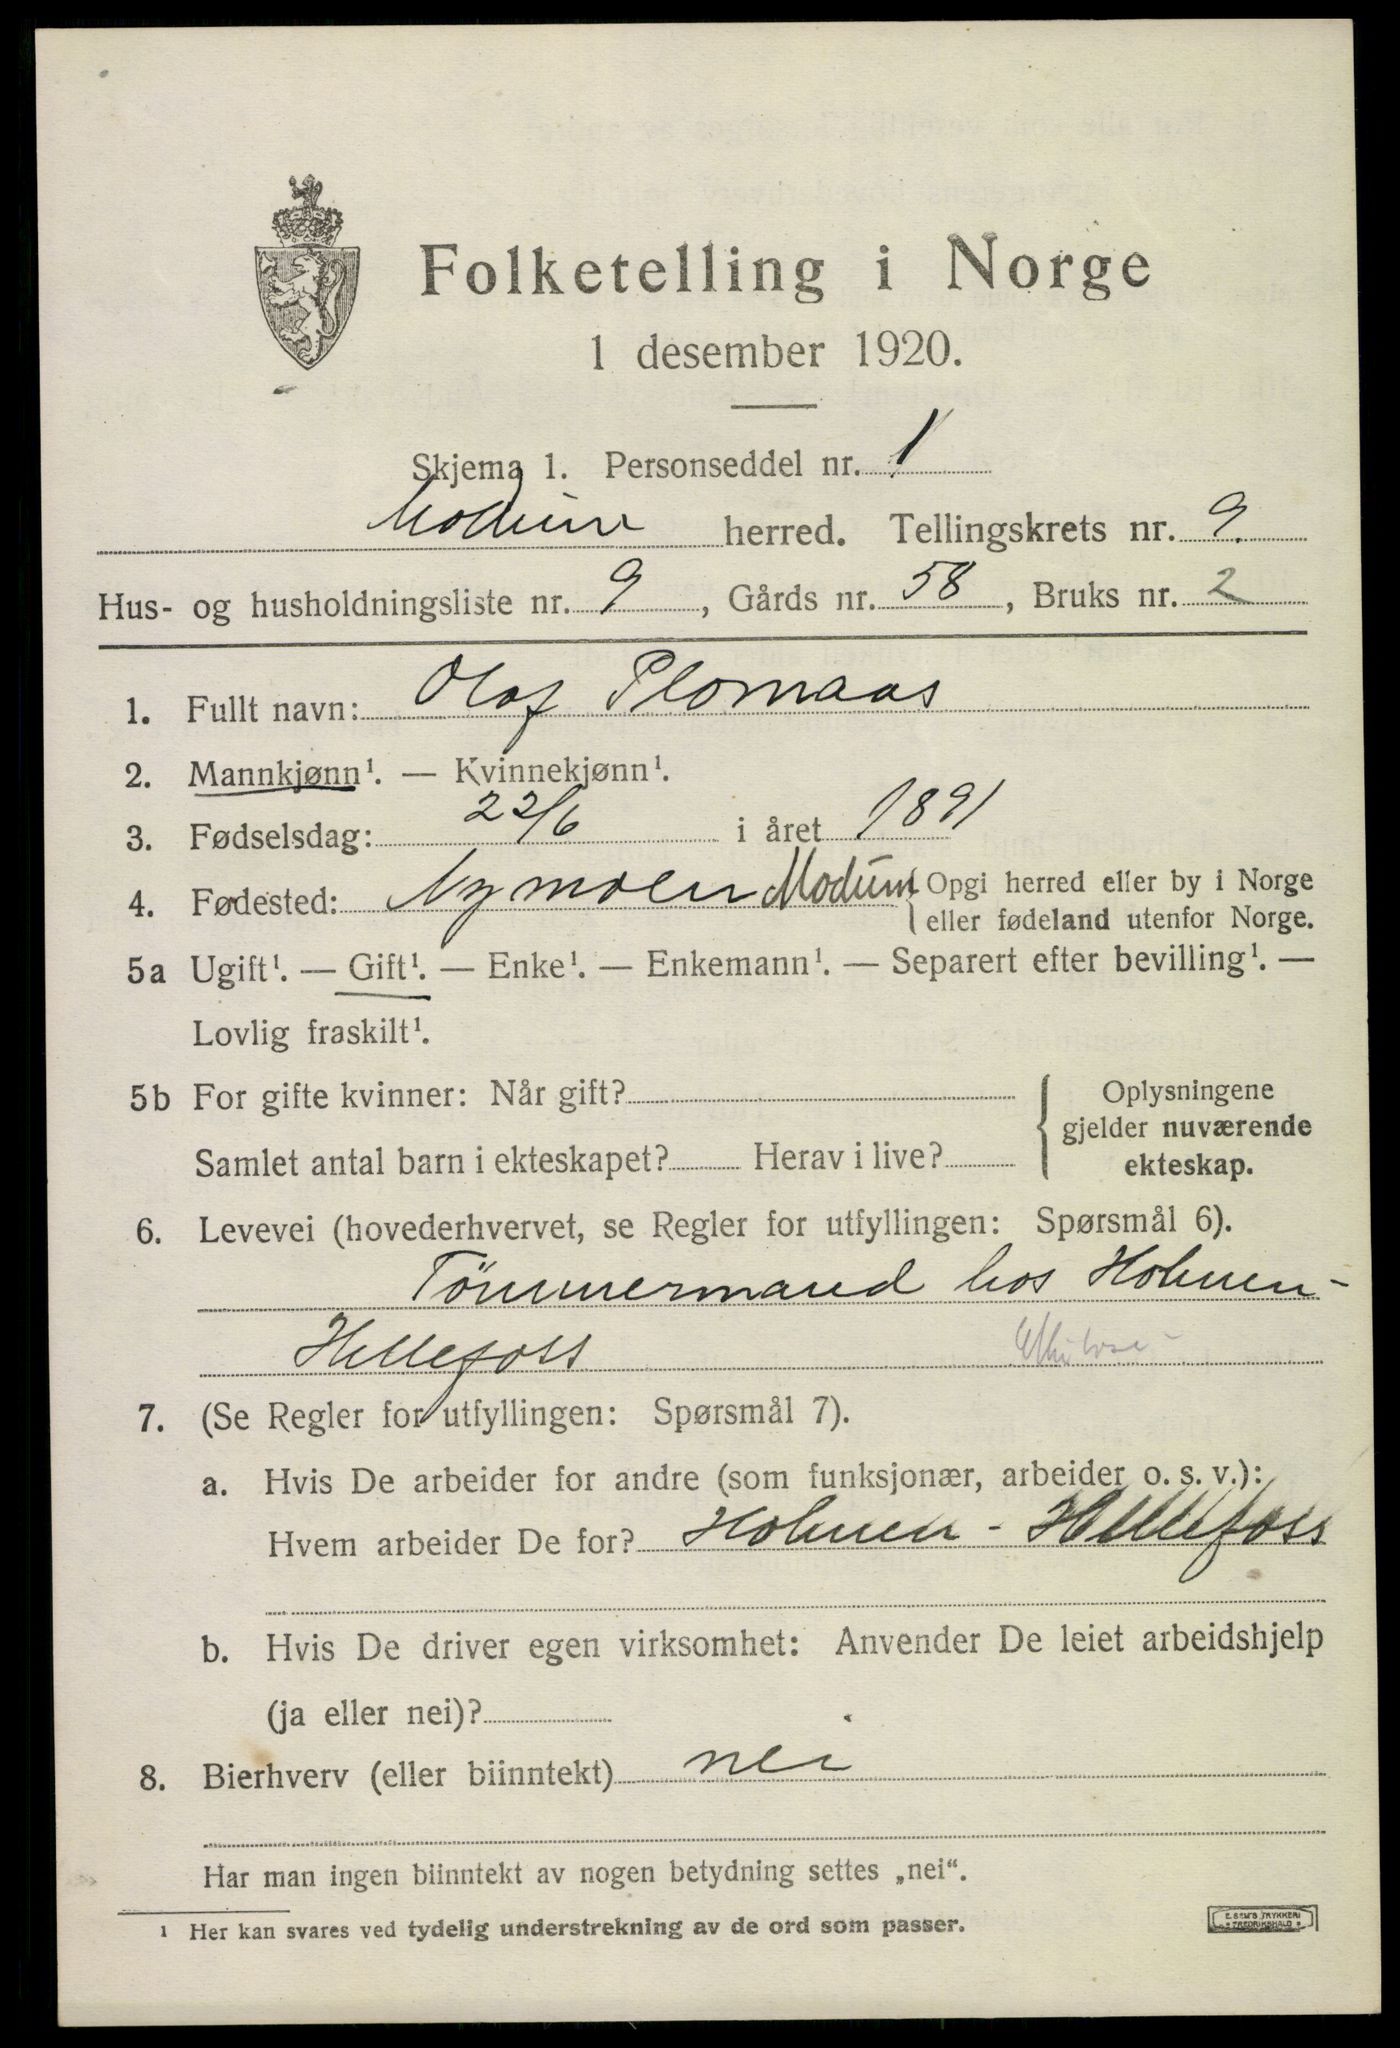 Folketelling i Norge
1 desember 1920.
Skjema 1. Personseddel nr. 1
Modum herred. Tellingskrets nr. 9.
Hus- og husholdningsliste nr. 9, Gårds nr. 58, Bruks nr. 2
1. Fullt navn: Olaf Plomaas
2. Mannkjønn¹. — Kvinnekjønn¹.
3. Fødselsdag: 22/6 i året 1891
4. Fødested: Nymoen Modum { Opgi herred eller by i Norge
eller fødeland utenfor Norge.
5a Ugift¹. — Gift¹. — Enke¹. — Enkemann¹. — Separert efter bevilling¹. —
Lovlig fraskilt¹.
5b For gifte kvinner: Når gift?
Samlet antal barn i ekteskapet? Herav i live?
{ Oplysningene
gjelder nuværende
ekteskap.
6. Levevei (hovederhvervet, se Regler for utfyllingen: Spørsmål 6).
Tömmermand hos Holmen-
Hellefoss
7. (Se Regler for utfyllingen: Spørsmål 7).
a. Hvis De arbeider for andre (som funksjonær, arbeider o. s. v.):
Hvem arbeider De for? Holmen - Hellefoss
b. Hvis De driver egen virksomhet: Anvender De leiet arbeidshjelp
(ja eller nei)?
8. Bierhverv (eller biinntekt) nei
Har man ingen biinntekt av nogen betydning settes „nei“.
¹ Her kan svares ved tydelig understrekning av de ord som passer.
E. SEM'S TRYKKERI
FREDRIKSHALD